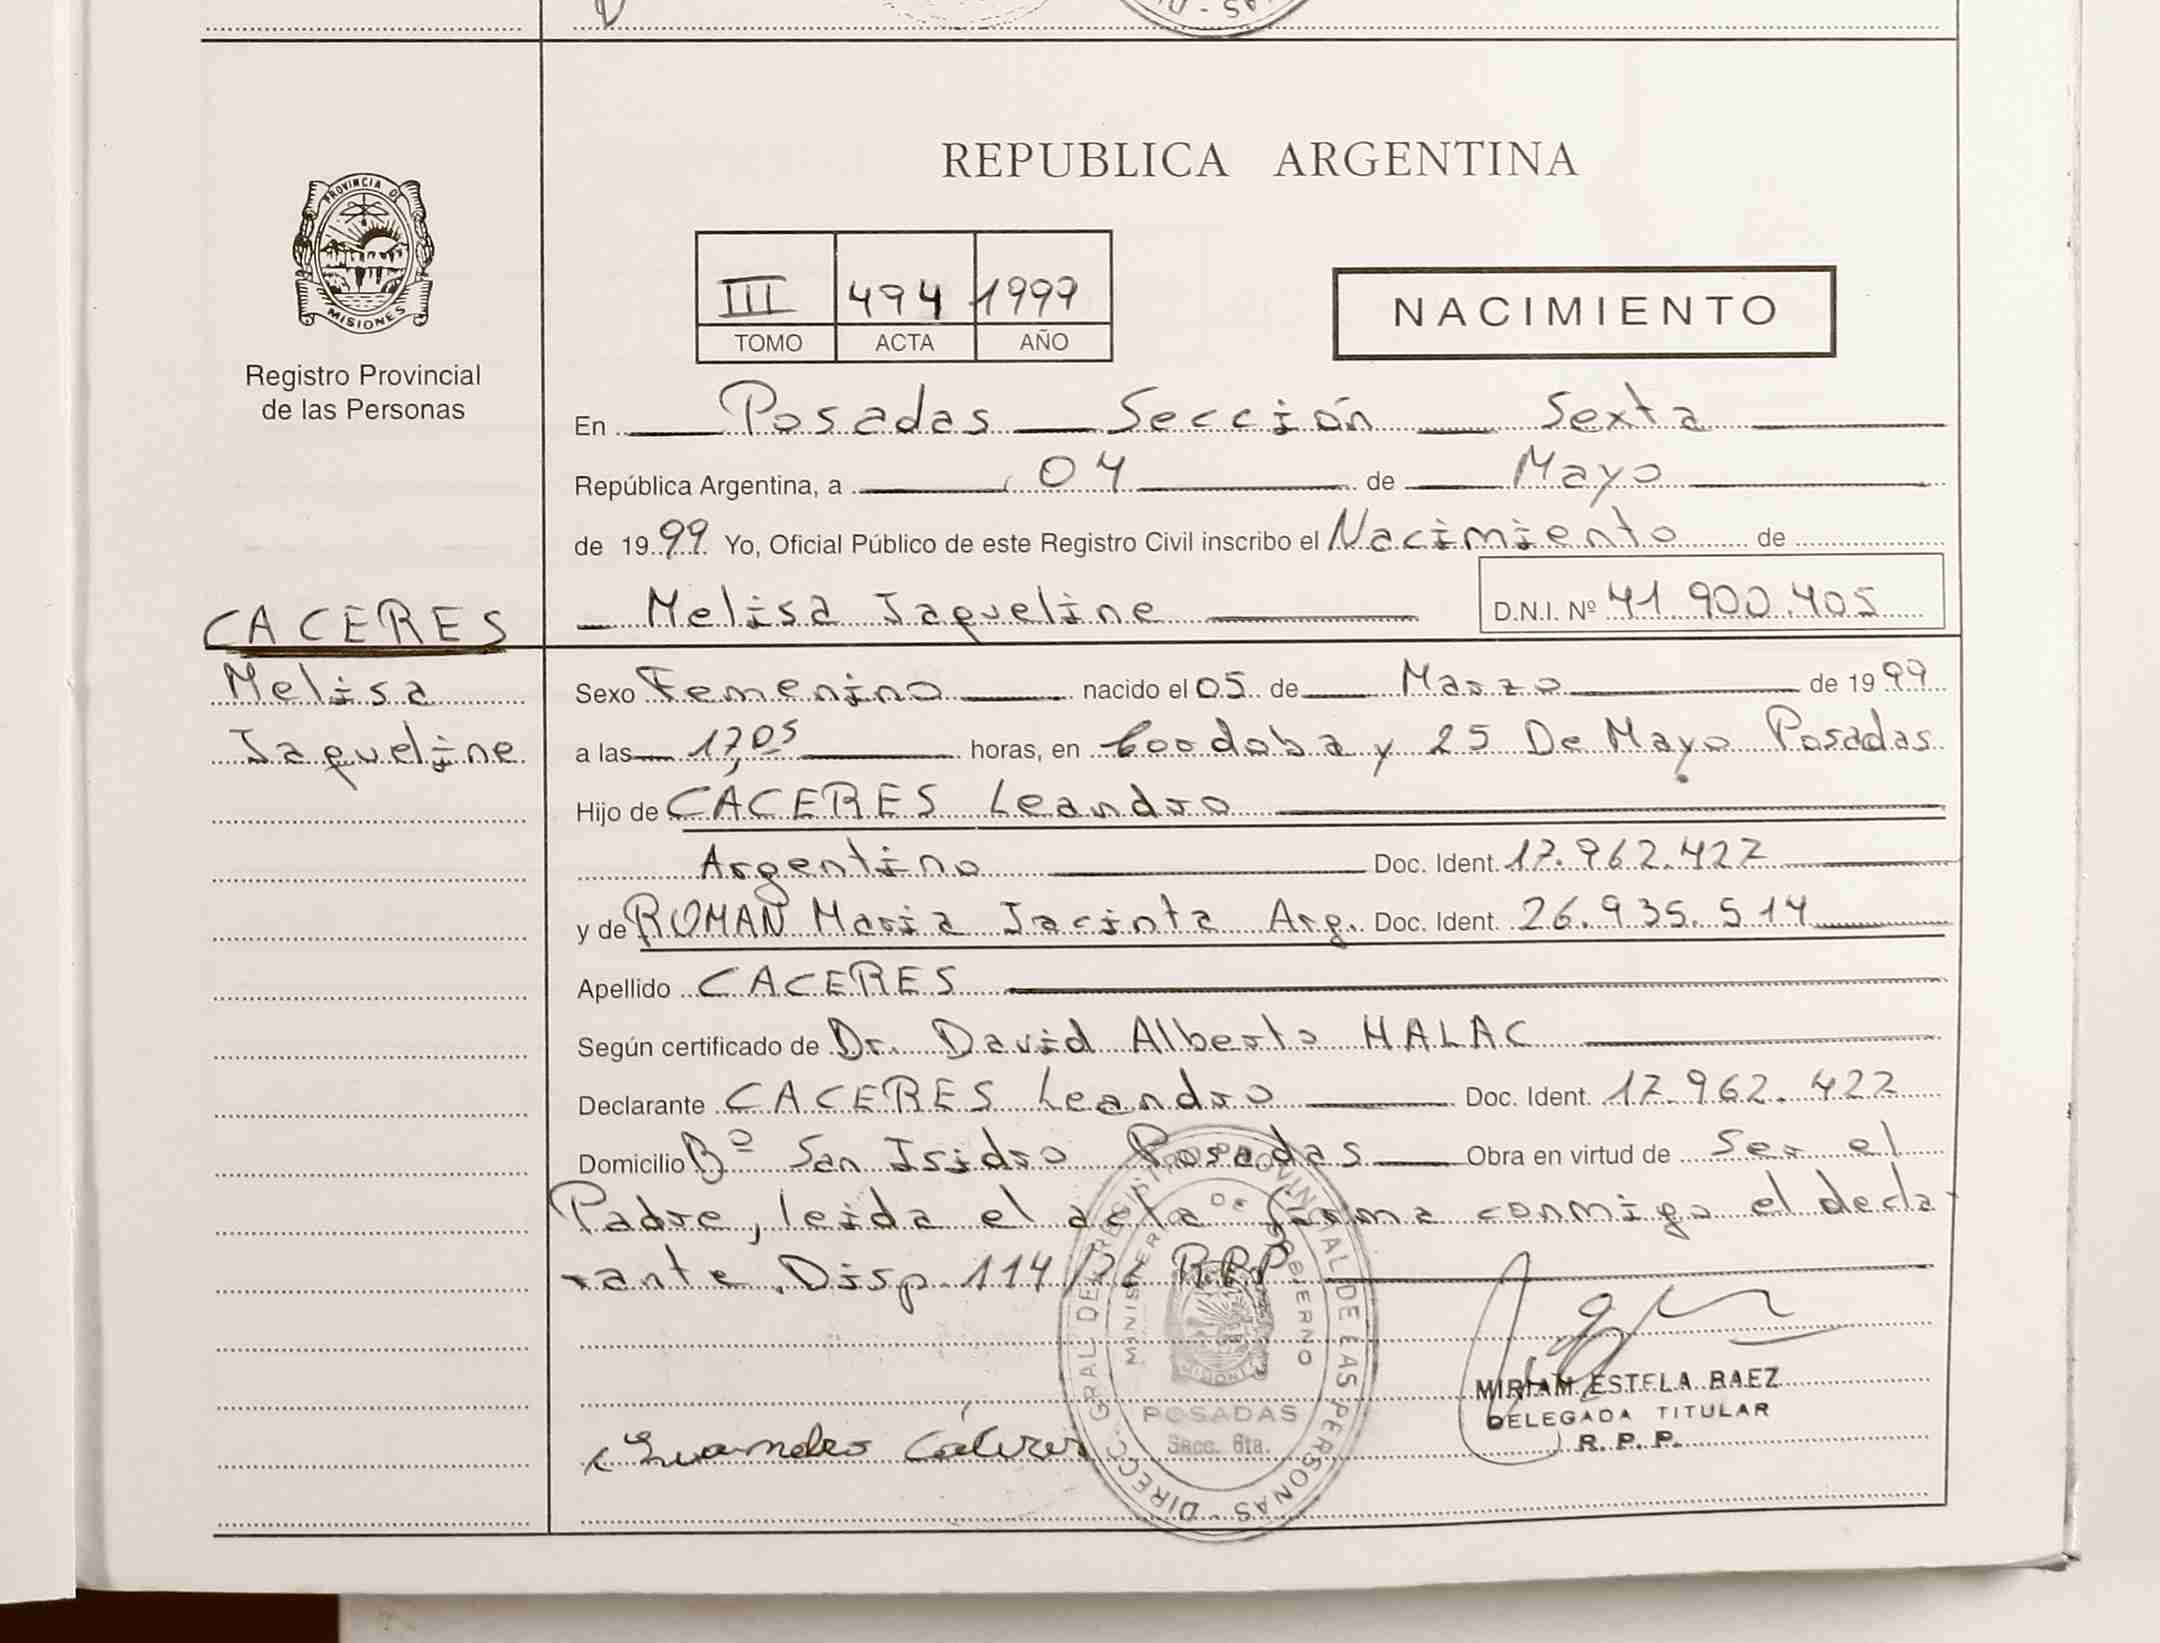 REPUBLICA ARGENTINA
PROVINCIA DE
MISIONES
Registro Provincial
de las Personas
III 494 1999
TOMO ACTA AÑO
NACIMIENTO
En Posadas Sección Sexta
República Argentina, a 04 de Mayo
de 1999 Yo, Oficial Público de este Registro Civil inscribo el Nacimiento de
Melisa Jaqueline D.N.I. Nº 41.900.405
CACERES
Melisa
Jaqueline
Sexo Femenino nacido el 05 de Marzo de 1999
a las 17,05 horas, en Cordoba y 25 De Mayo Posadas
Hijo de CÁCERES Leandro
Argentino Doc. Ident. 17.962.427
y de ROMAN Maria Jacinta Arg. Doc. Ident. 26.935.514
Apellido CACERES
Según certificado de Dr. David Alberto HALAC
Declarante CACERES Leandro Doc. Ident. 17.962.427
Domicilio Bº San Isidro Posadas Obra en virtud de Ser el
Padre, leida el acta firma conmigo el decla-
rante. Disp. 114 R.P.P.
DIRECC. GRAL. DEL REGISTRO PROVINCIAL DE LAS PERSONAS
MINISTERIO DE GOBIERNO
MISIONES
POSADAS
Secc. 6ta.
Leandro Cáceres
MIRIAM ESTELA BAEZ
DELEGADA TITULAR
R. P. P.